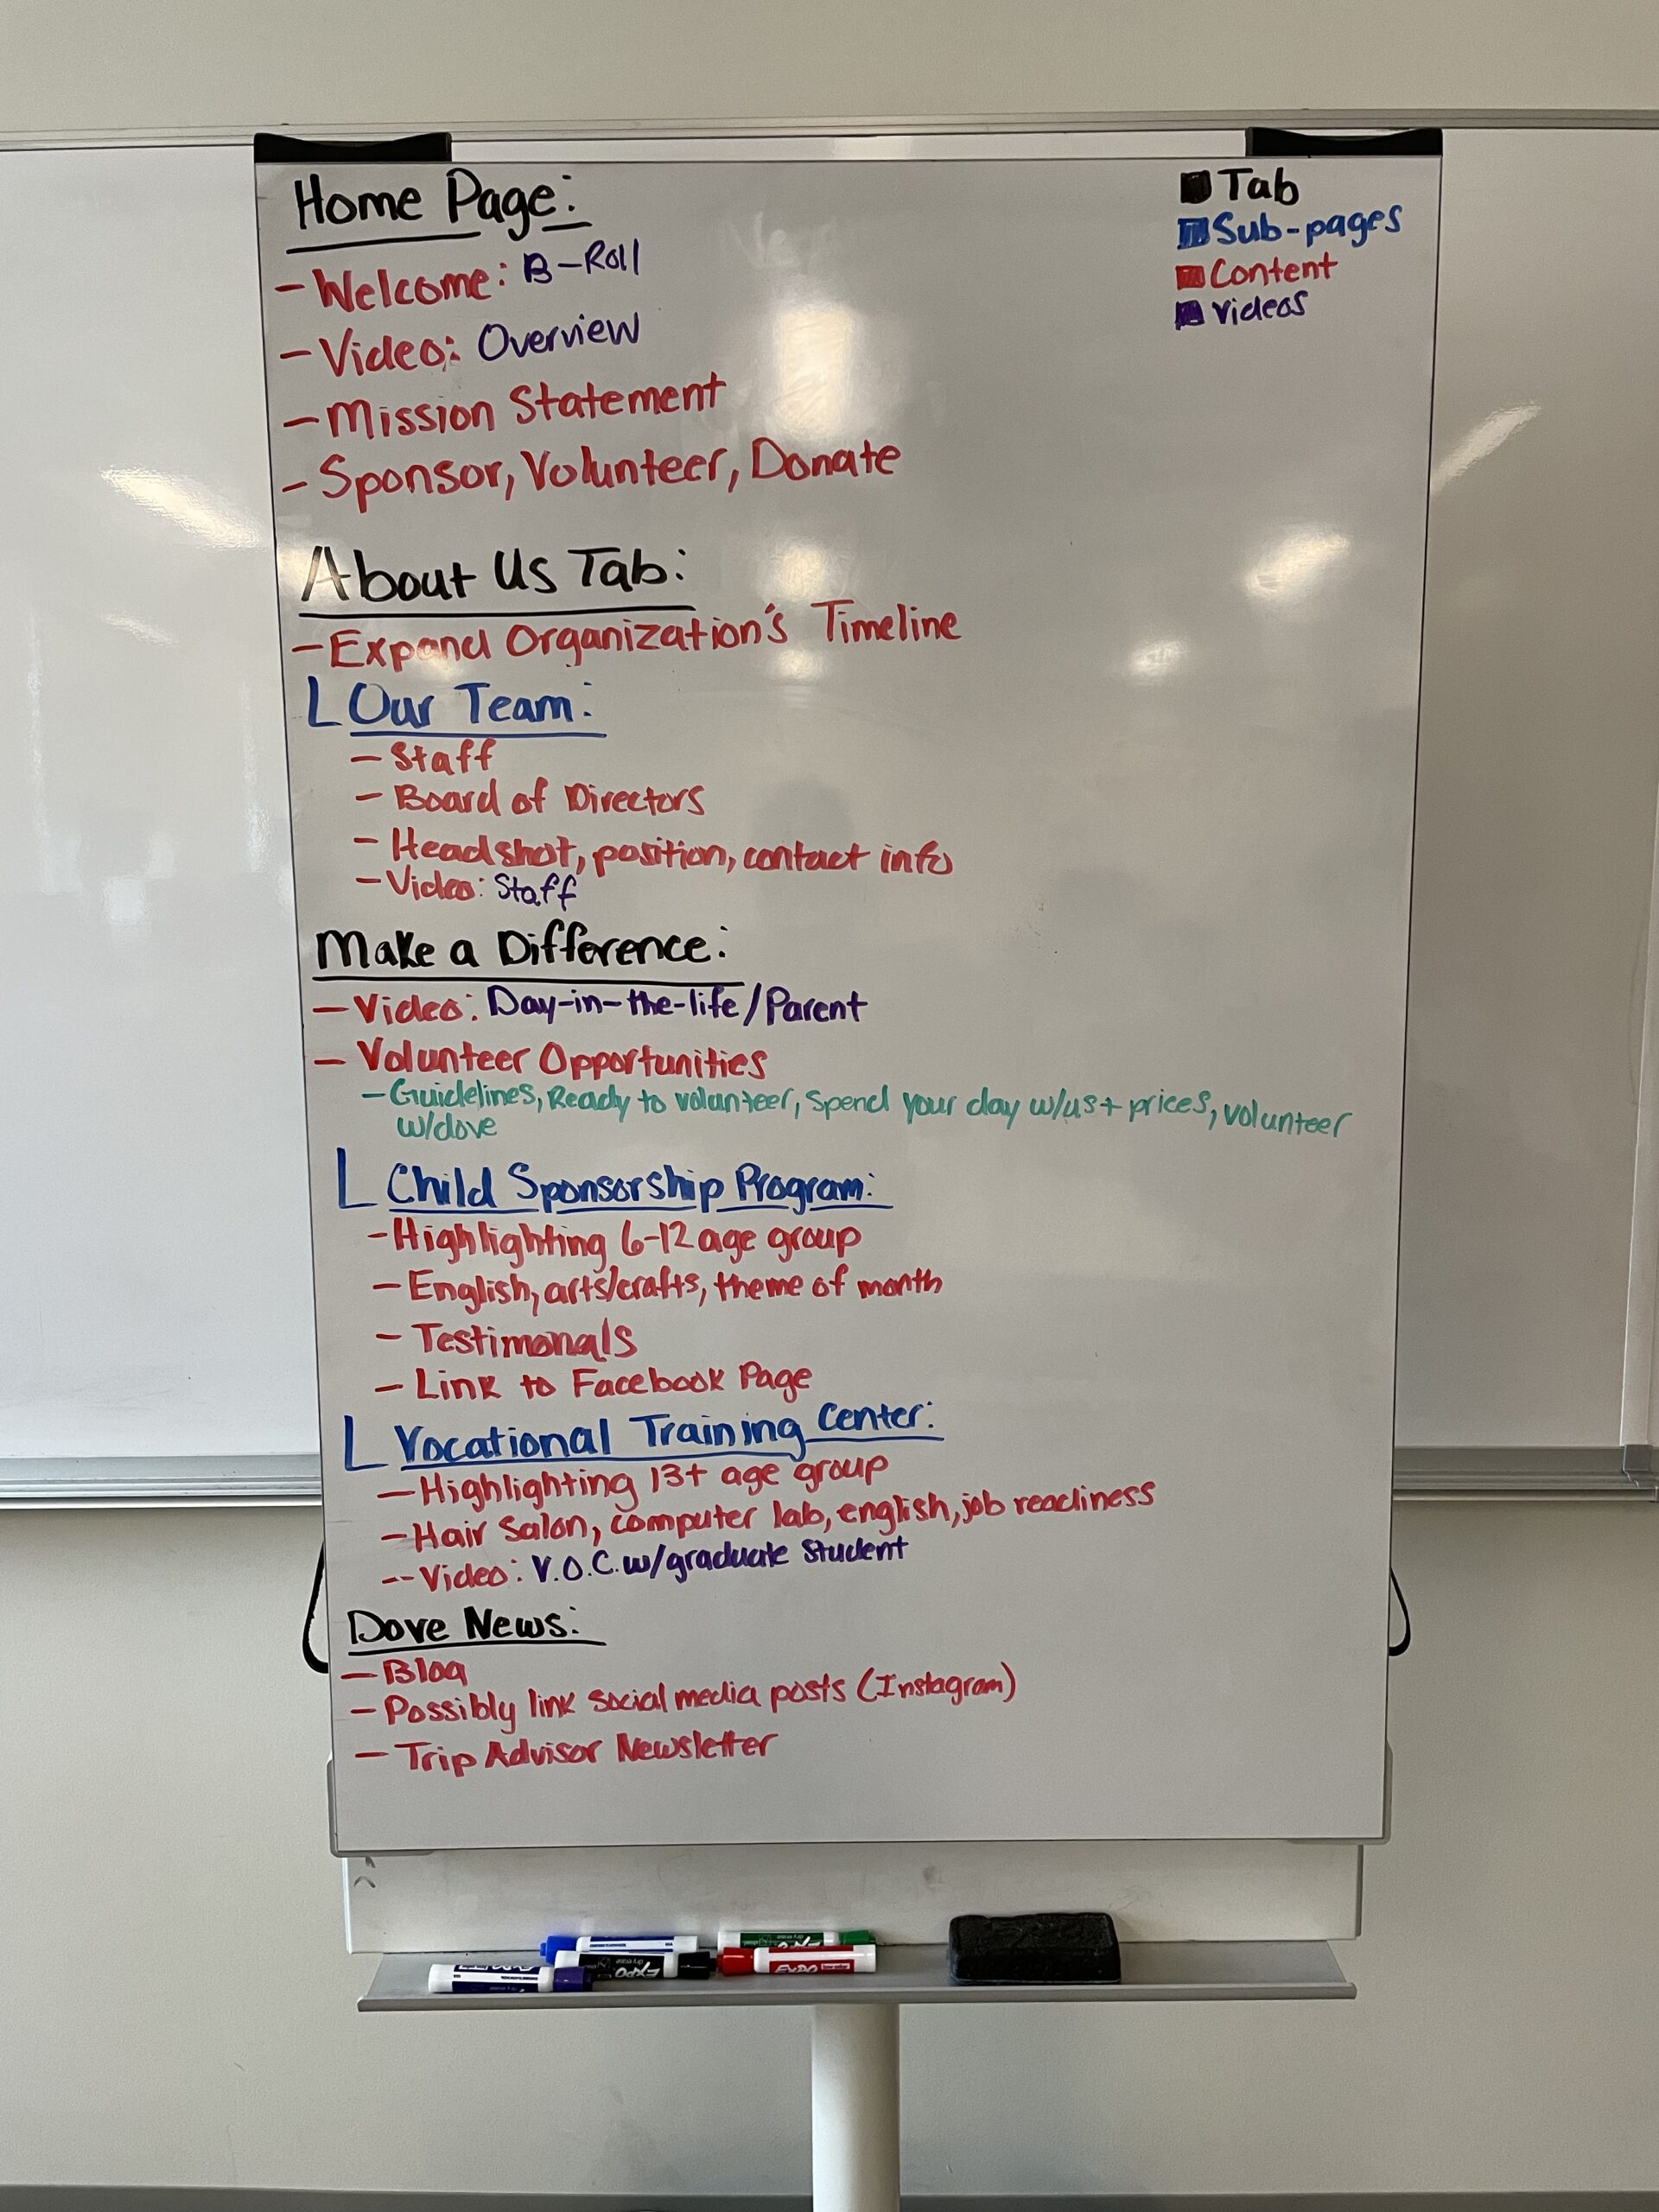 Home Page:
- Welcome: B-Roll
- Video: Overview
- Mission Statement
- Sponsor, Volunteer, Donate
Tab
Sub-pages
Content
Videos
About Us Tab:
- Expand Organization's Timeline
L Our Team:
- Staff
- Board of Directors
- Headshot, position, contact info
- Video: Staff
Make a Difference:
- Video: Day-in-the-life/Parent
- Volunteer Opportunities
- Guidelines, Ready to volunteer, Spend your day w/us + prices, volunteer
w/dove
L Child Sponsorship Program:
- Highlighting 6-12 age group
- English, arts/crafts, theme of month
- Testimonals
- Link to Facebook Page
L Vocational Training Center:
- Highlighting 13+ age group
- Hair Salon, computer lab, english, job readiness
-- Video: V.O.C. w/graduate Student
Dove News:
- Blog
- Possibly link social media posts (Instagram)
- Trip Advisor Newsletter
EXPO
EXPO
EXPO